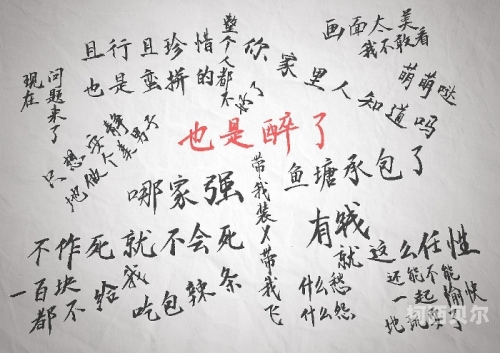 画面太美
我不敢看
且行且珍惜
也是蛮拼的
整个人都不好了
你家里人知道吗
萌萌哒
现在问题来了
只想安静
地做个美男子
也是醉了
哪家强
鱼塘承包了
带我装X带我飞
有钱
就这么任性
不作死就不会死
一百块
都不给我
吃包辣条
什么愁
什么怨
还能不能
一起愉快
地玩耍了